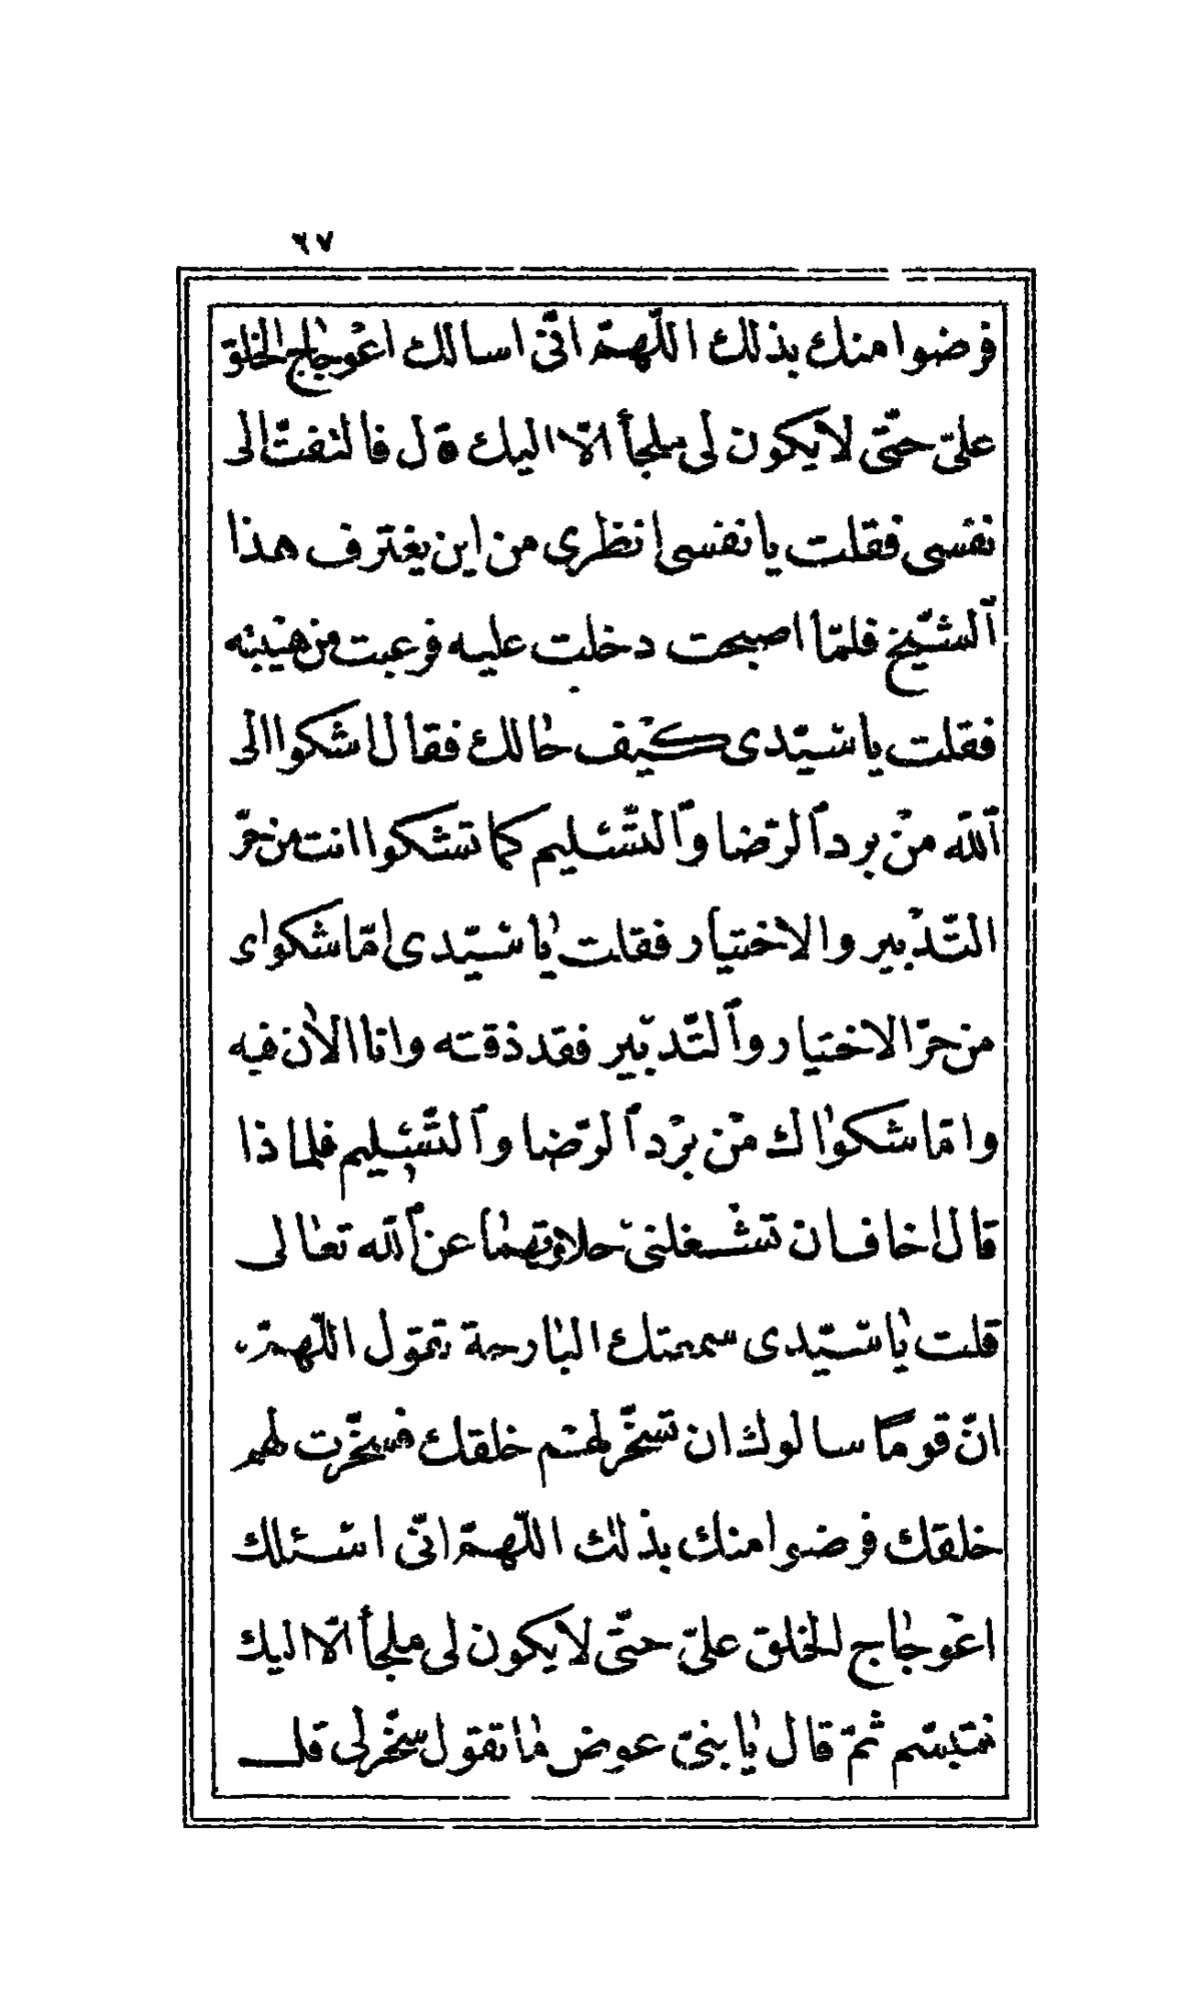 ٦٧
فرضوا منك بذلك اللّهمّ انّى اسالك اعْوجاج الخلق
علىّ حتّى لا يكون لى ملجأ الّا اليك قال فالتفتّ الى
نفسى فقلت يا نفسى انظرى من اين يغترف هذا
ٱلشّيخ فلمّا اصبحت دخلت عليه فرعبت من هيبته
فقلت يا سيّدى كيْف حالك فقال اشكوا الى
ٱللّه منْ برد ٱلرّضا وٱلتّسْليم كما تشكوا انت من حرّ
التّدْبير والاختيار فقلت يا سيّدى امّا شكواى
من حرّ الاختيار وٱلتّدبير فقد ذقته وانا الآن فيه
وامّا شكواك منْ برْد ٱلرّضا وٱلتّسْليم فلماذا
قال اخاف ان تشْغلنى حلاوتهما عن ٱللّه تعالى
قلت يا سيّدى سمعتك البارحة تقول اللّهمّ
انّ قومًا سالوك ان تسخّر لهمْ خلقك فسخّرت لهم
خلقك فرضوا منك بذلك اللّهمّ انّى اسْئلك
اعْوجاج الخلق علىّ حتّى لا يكون لى ملجأ الّا اليك
فتبسّم ثمّ قال يا بنىّ عوض ما تقول سخّر لى قلـ